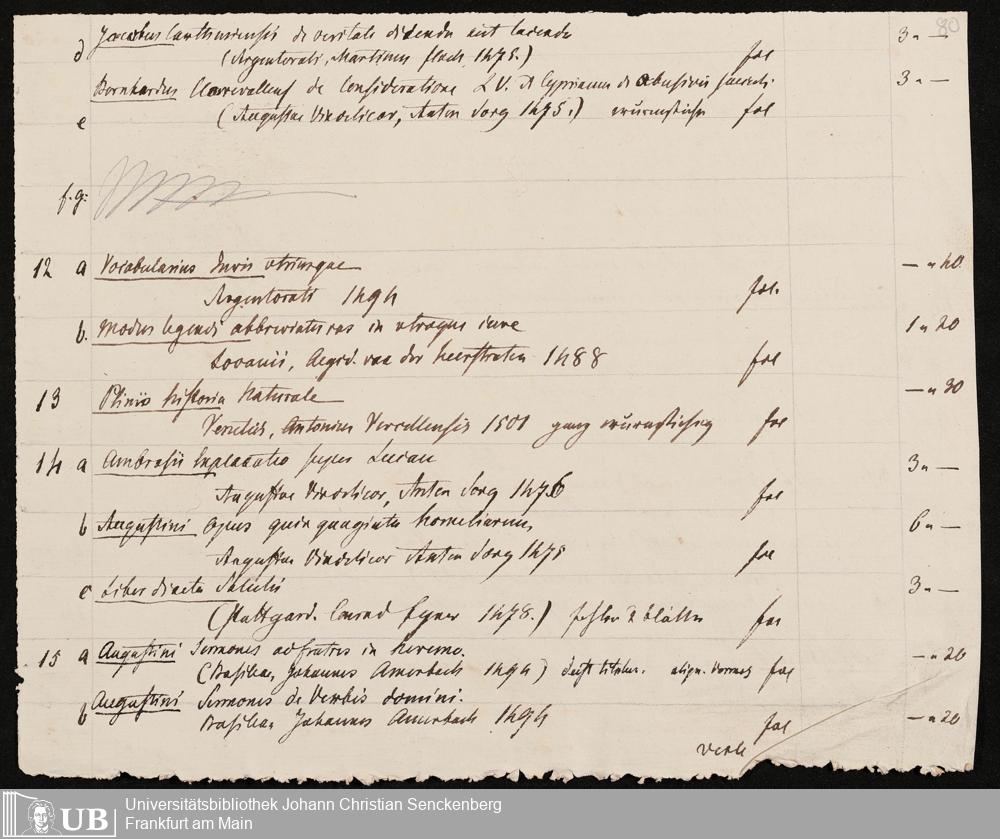 80
d Jacobus Carthusiensis de veritate dicenda aut tacenda 3 " —
(Argentorati, Martinus flach 1473.) fol
Bernhardus Clarevallens de Consideratione L V. & Cyprianus de abusivis saeculi 3 " —
e (Augustae Vindelicor, Anton Sorg 1475.) wurmstichig fol
f. g.
12 a Vocabularius Juris utriusque — " 40
Argentorati 1494 fol.
b. Modus legendi abbreviaturas in utroque iure 1 " 20
Lovanii, Aegid. van der heerstraten 1488 fol
13 Plinii historia Naturale — " 30
Venetiis, Antonius Vercellensis 1501 ganz wurmstichig fol
14 a Ambrosii Explanatio super Lucam 3 " —
Augustae Vindelicor, Anton Sorg 1476 fol
b Augustini opus quinquaginta homeliarum, 6 " —
Augustae Vindelicor Anton Sorg 1475
fol
c Liber diaeta Salutis 3 " —
(Stuttgard. Conrad fyner 1478.) fehlen 2 blätter fol
15 a Augustini Sermones ad fratres in heremo. — " 20
(Basileae, Johannes Amerbach 1494) deest titulus. fol
Augustini Sermones de Verbis domini.
b Basileae Johannes Amerbach 1494 fol — " 20
verte
UB
Universitätsbibliothek Johann Christian Senckenberg
Frankfurt am Main